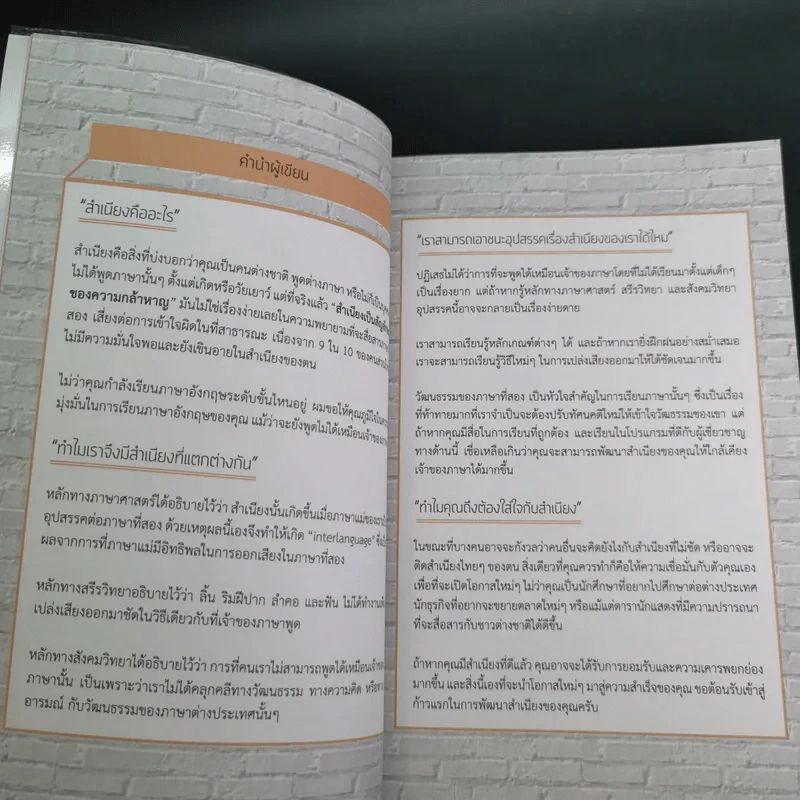 คำนำผู้เขียน
“สำเนียงคืออะไร”
สำเนียงคือสิ่งที่บ่งบอกว่าคุณเป็นคนต่างชาติ พูดต่างภาษา หรือไม่ก็เป็น
ไม่ได้พูดภาษานั้นๆ ตั้งแต่เกิดหรือวัยเยาว์ แต่ที่จริงแล้ว “สำเนียงเป็น
ของความกล้าหาญ” มันไม่ใช่เรื่องง่ายเลยในความพยายามที่จะสื่อสาร
สอง เสี่ยงต่อการเข้าใจผิดในที่สาธารณะ เนื่องจาก 9 ใน 10 ของคน
ไม่มีความมั่นใจพอและยังเขินอายในสำเนียงของตน
ไม่ว่าคุณกำลังเรียนภาษาอังกฤษระดับชั้นไหนอยู่ ผมขอให้คุณภูมิใจใน
มุ่งมั่นในการเรียนภาษาอังกฤษของคุณ แม้ว่าจะยังพูดไม่ได้เหมือนเจ้าของ
“ทำไมเราจึงมีสำเนียงที่แตกต่างกัน”
หลักทางภาษาศาสตร์ได้อธิบายไว้ว่า สำเนียงนั้นเกิดขึ้นเมื่อภาษาแม่ของเรา
อุปสรรคต่อภาษาที่สอง ด้วยเหตุผลนี้เองจึงทำให้เกิด “interlanguage”
ผลจากการที่ภาษาแม่มีอิทธิพลในการออกเสียงในภาษาที่สอง
หลักทางสรีรวิทยาอธิบายไว้ว่า ลิ้น ริมฝีปาก ลำคอ และฟัน ไม่ได้ทำงาน
เปล่งเสียงออกมาชัดในวิธีเดียวกับที่เจ้าของภาษาพูด
หลักทางสังคมวิทยาได้อธิบายไว้ว่า การที่คนเราไม่สามารถพูดได้เหมือน
ภาษานั้น เป็นเพราะว่าเราไม่ได้คลุกคลีทางวัฒนธรรม ทางความคิด หรือ
อารมณ์ กับวัฒนธรรมของภาษาต่างประเทศนั้นๆ
“เราสามารถเอาชนะอุปสรรคเรื่องสำเนียงของเราได้ไหม”
ปฏิเสธไม่ได้ว่าการที่จะพูดได้เหมือนเจ้าของภาษาโดยที่ไม่ได้เรียนมาตั้งแต่เด็กๆ
เป็นเรื่องยาก แต่ถ้าหากรู้หลักทางภาษาศาสตร์ สรีรวิทยา และสังคมวิทยา
อุปสรรคนี้อาจจะกลายเป็นเรื่องง่ายดาย
เราสามารถเรียนรู้หลักเกณฑ์ต่างๆ ได้ และถ้าหากเรายิ่งฝึกฝนอย่างสม่ำเสมอ
เราจะสามารถเรียนรู้วิธีใหม่ๆ ในการเปล่งเสียงออกมาให้ได้ชัดเจนมากขึ้น
วัฒนธรรมของภาษาที่สอง เป็นหัวใจสำคัญในการเรียนภาษานั้นๆ ซึ่งเป็นเรื่อง
ที่ท้าทายมากที่เราจำเป็นจะต้องปรับทัศนคติใหม่ให้เข้าใจวัฒนธรรมของเขา แต่
ถ้าหากคุณมีสื่อในการเรียนที่ถูกต้อง และเรียนในโปรแกรมที่ดีกับผู้เชี่ยวชาญ
ทางด้านนี้ เชื่อเหลือเกินว่าคุณจะสามารถพัฒนาสำเนียงของคุณให้ใกล้เคียง
เจ้าของภาษาได้มากขึ้น
“ทำไมคุณถึงต้องใส่ใจกับสำเนียง”
ในขณะที่บางคนอาจจะกังวลว่าคนอื่นจะคิดยังไงกับสำเนียงที่ไม่ชัด หรืออาจจะ
ติดสำเนียงไทยๆ ของตน สิ่งเดียวที่คุณควรทำก็คือให้ความเชื่อมั่นกับตัวคุณเอง
เพื่อที่จะเปิดโอกาสใหม่ๆ ไม่ว่าคุณเป็นนักศึกษาที่อยากไปศึกษาต่อต่างประเทศ
นักธุรกิจที่อยากจะขยายตลาดใหม่ๆ หรือแม้แต่ดารานักแสดงที่มีความปรารถนา
ที่จะสื่อสารกับชาวต่างชาติได้ดีขึ้น
ถ้าหากคุณมีสำเนียงที่ดีแล้ว คุณอาจจะได้รับการยอมรับและความเคารพยกย่อง
มากขึ้น และสิ่งนี้เองที่จะนำโอกาสใหม่ๆ มาสู่ความสำเร็จของคุณ ขอต้อนรับเข้าสู่
ก้าวแรกในการพัฒนาสำเนียงของคุณครับ